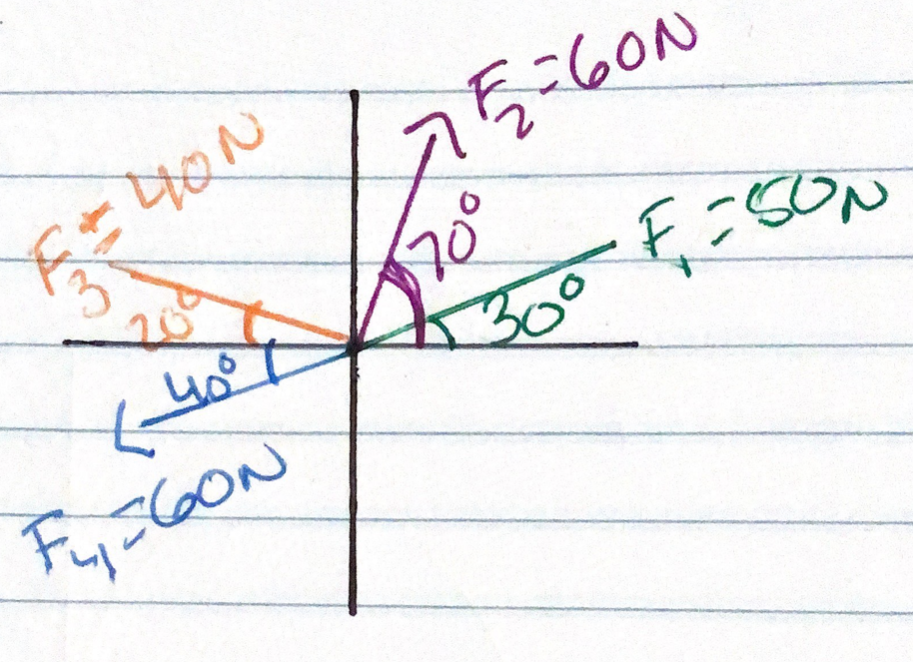 F₂=60N
F₃=40N
70°
F₁=50N
30°
20°
40°
F₄=60N